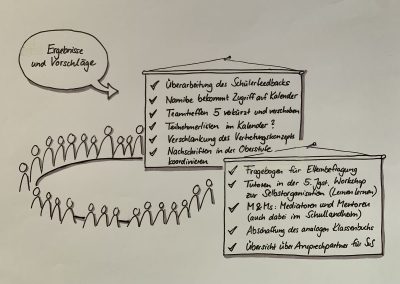 Ergebnisse
und Vorschläge
✓ Überarbeitung des Schülerfeedbacks
✓ Namibe bekommt Zugriff auf Kalender
✓ Teamtreffen 5 verkürzt und verschoben
✓ Teilnehmerlisten im Kalender?
✓ Verschlankung des Vertretungskonzepts
✓ Nachschriften in der Oberstufe
koordinieren
✓ Fragebogen für Elternbefragung
✓ Tutoren in der 5. Jgst. Workshop
zur Selbstorganisation (Lernen lernen)
✓ M&Ms: Mediatoren und Mentoren
(auch dabei im Schullandheim)
✓ Abschaffung des analogen Klassenbuchs
✓ Übersicht über Ansprechpartner für SuS